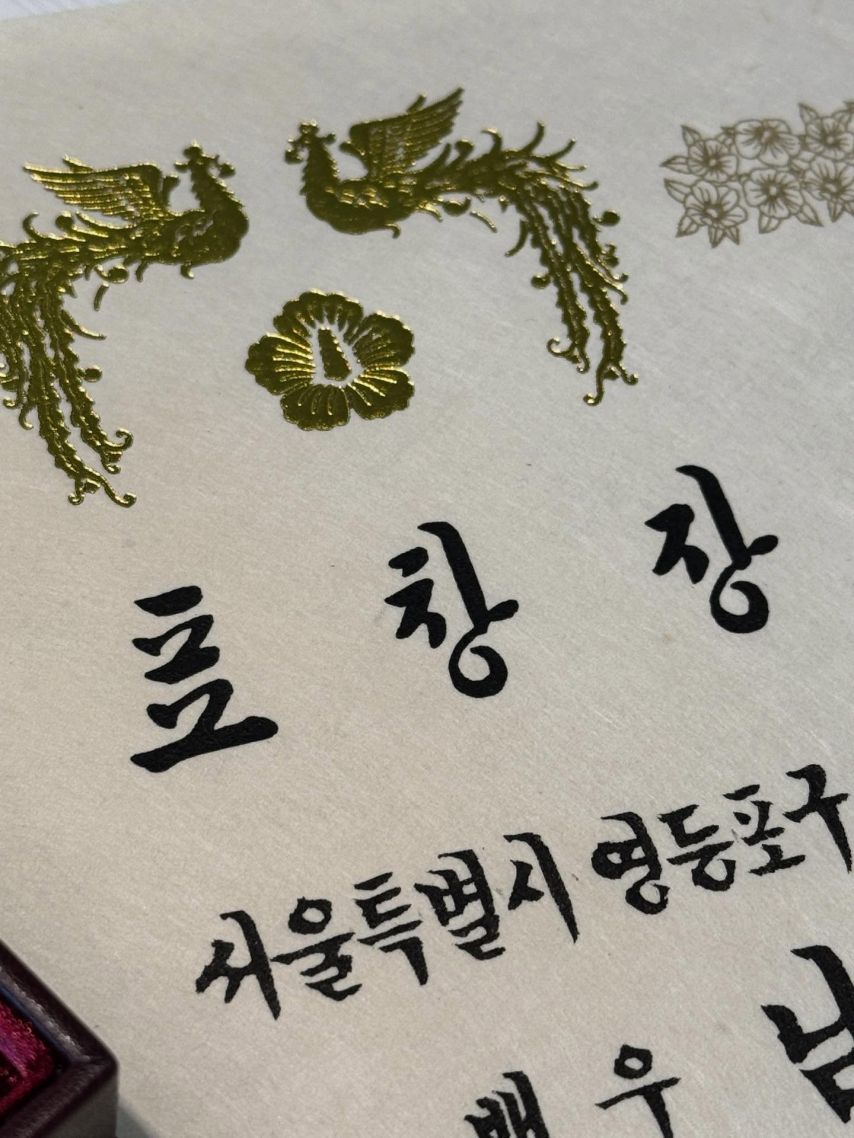 표 창 장
서울특별시 영등포구
배우